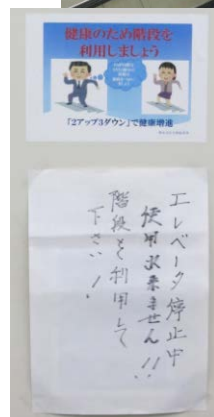 健康のため階段を
利用しましょう
「2アップ3ダウン」で健康増進
エレベータ停止中
使用出来ません!!
階段を利用して
下さい!